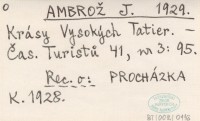 o
AMBROŽ J. 1929.
Krásy Vysokých Tatier. –
Čas. Turistů 41, nr 3: 95.
Rec. o: PROCHÁZKA
K. 1928.